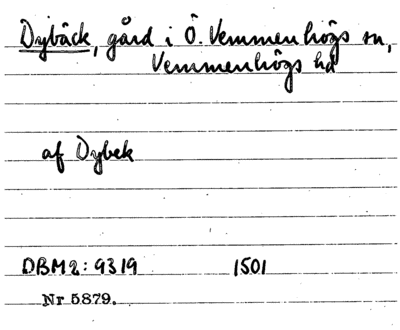 Dybäck, gård i Ö. Vemmenhögs sn,
Vemmenhögs hd
af Dybek
DBM2: 9319 1501
Nr 5879.